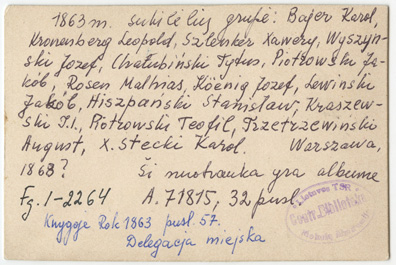 1863 m. sukilėlių grupė: Bajer Karol,
Kronenberg Leopold, Szlenker Xawery, Wyszyn-
ski Jozef, Chałubiński Tytus, Piotrowski Ja-
kób, Rosen Mathias, Köenig Jozef, Lewiński
Jakób, Hiszpański Stanisław, Kraszew-
ski J.I., Piotrowski Teofil, Trzetrzewiński
August, X. Stecki Karol. Warszawa,
1863? Ši nuotrauka yra albume
Fg. 1-2264 A. 71815, 32 pusl.
Knygoje Rok 1863 pusl. 57.
Delegacja miejska
Lietuvos TSR
Centr. Biblioteka